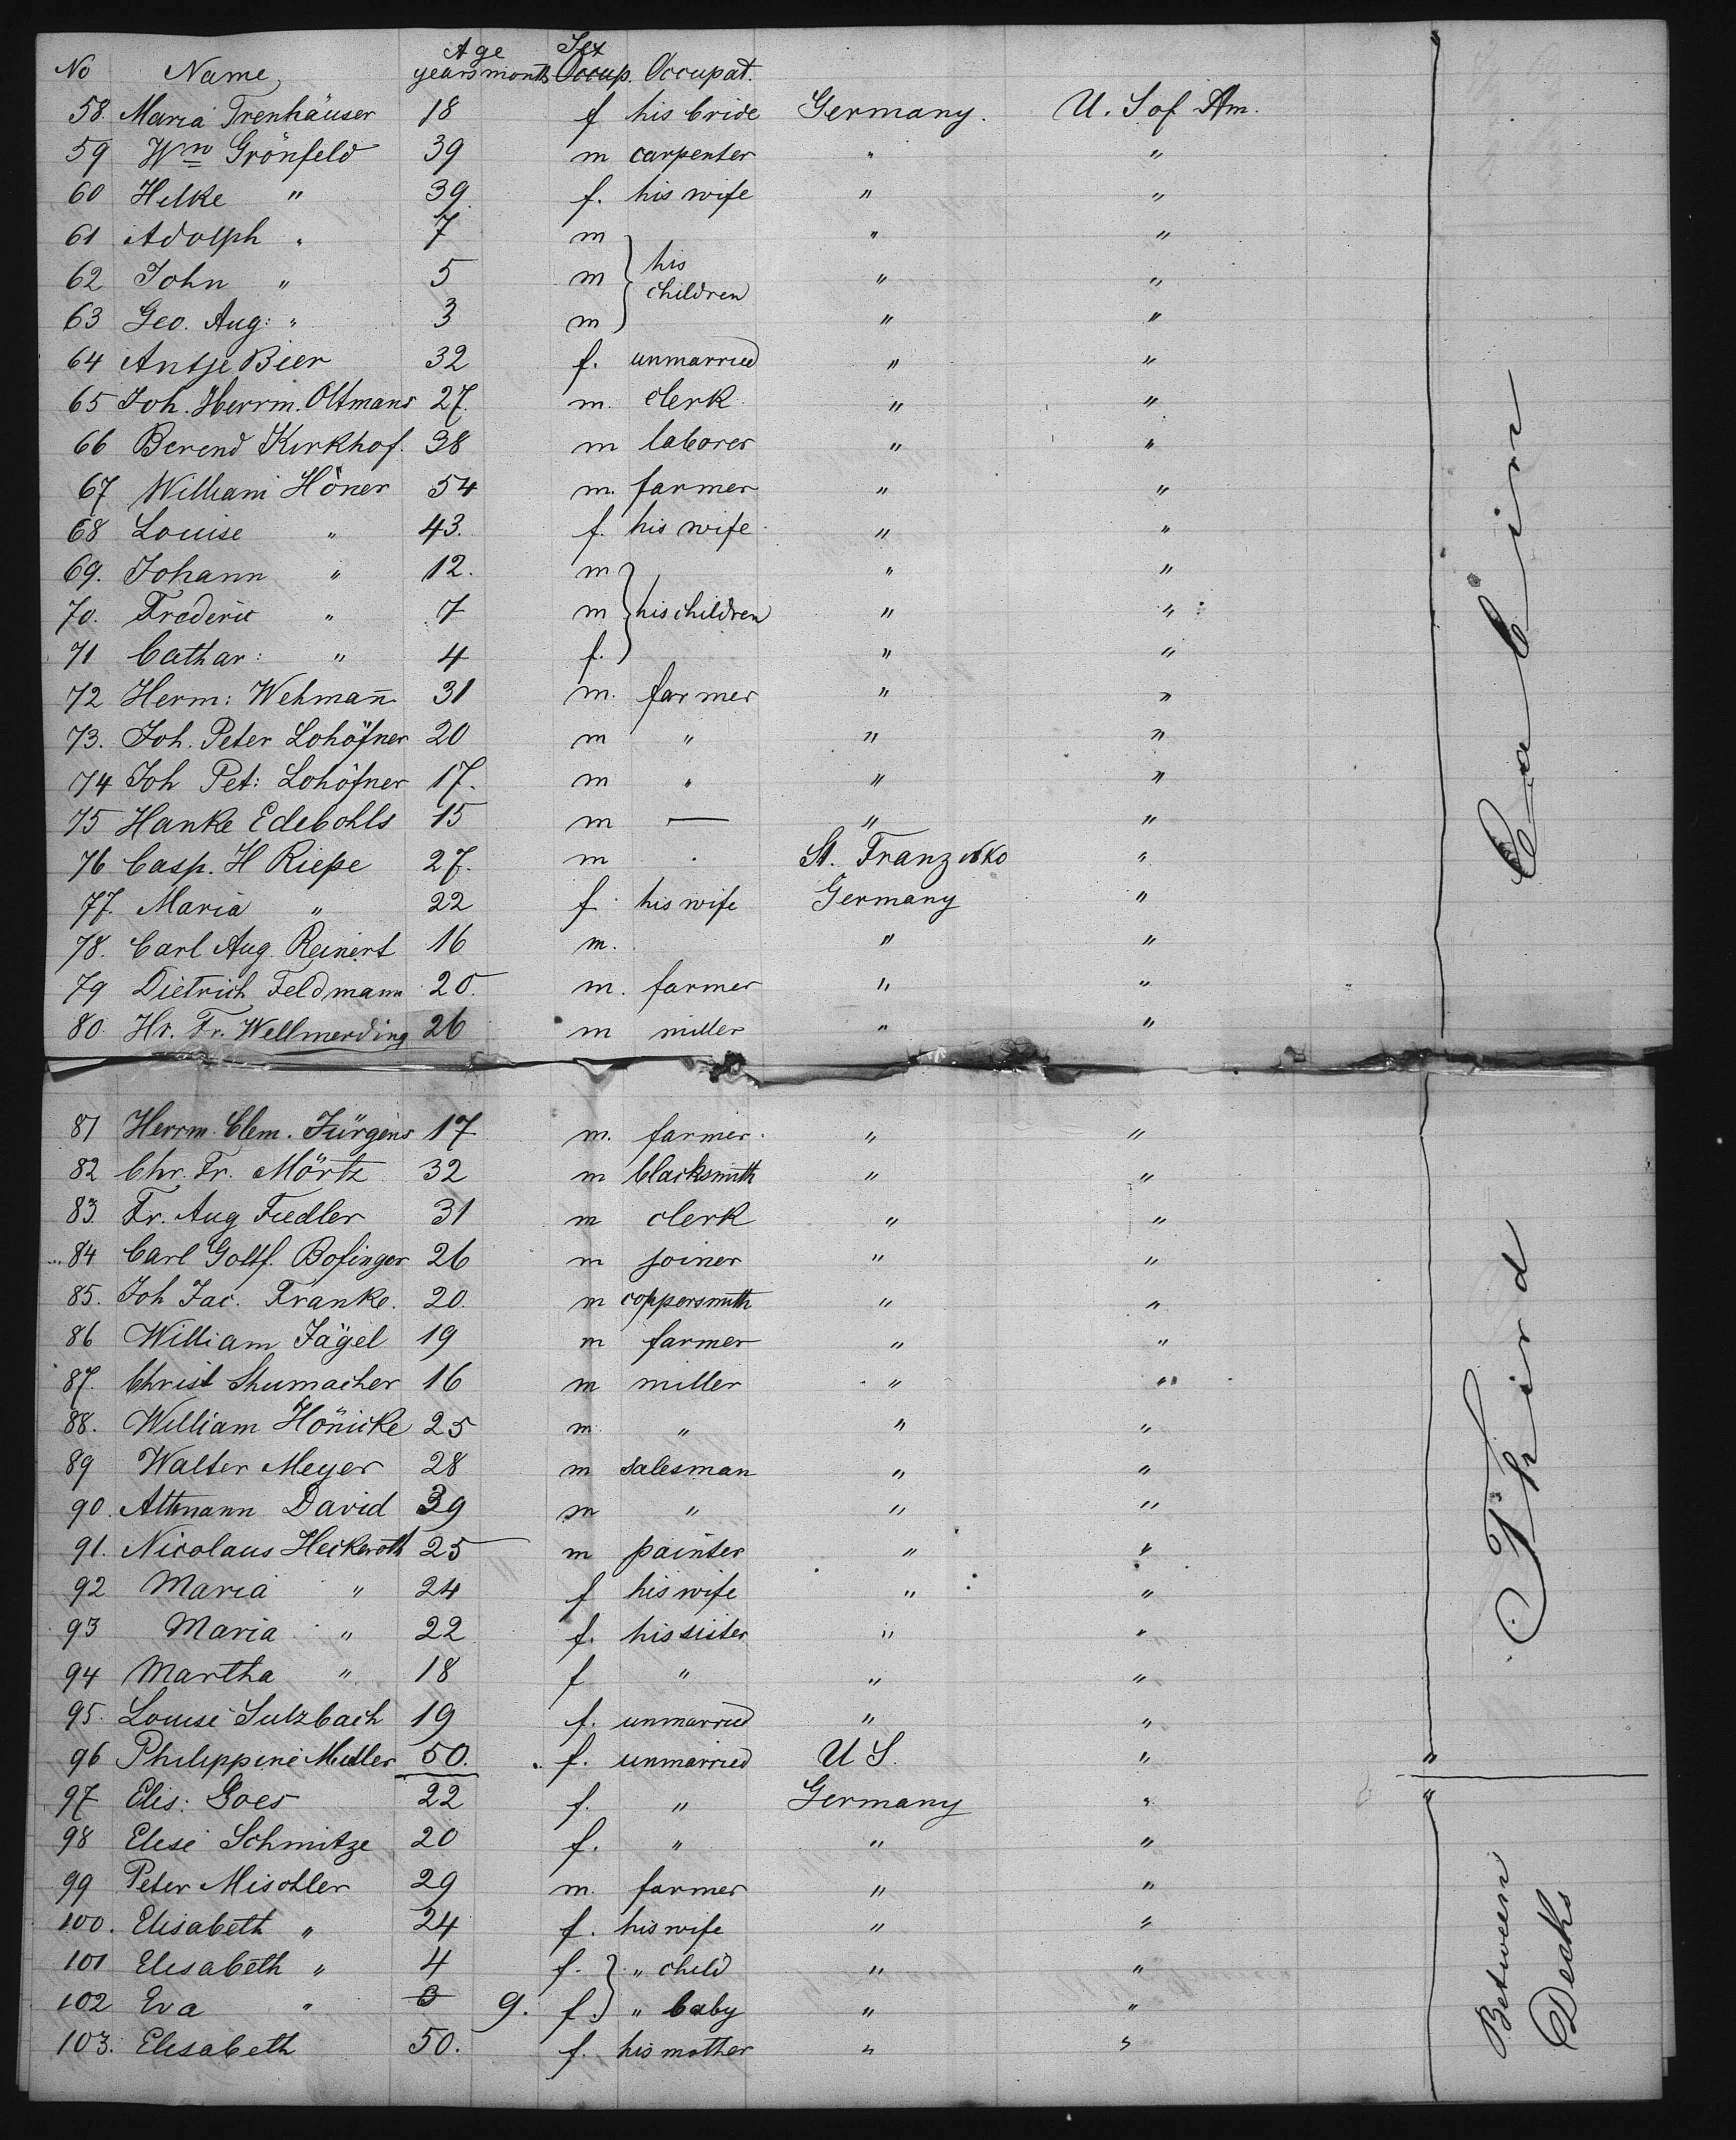 No Name Age years months Sex Occup. Occupat.
58. Maria Trenhäuser 18 f his bride Germany. U. S of Am.
59 Wm Grönfeld 39 m carpenter " "
60 Helke " 39 f. his wife " "
61 Adolph " 7 m " "
62 John " 5 m his children " "
63 Geo. Aug: " 3 m " "
64 Antje Bier 32 f. unmarried " "
65 Joh. Herrm. Oltmans 27. m. clerk " "
66 Berend Kirkhof. 38 m laborer " "
67 William Höner 54 m. farmer " "
68 Louise " 43. f. his wife " "
69. Johann " 12. m " "
70. Frederic " 7 m his children " "
71 Cathar: " 4 f. " "
72 Herm: Wehman̄ 31 m. farmer " "
73. Joh. Peter Lohöfner 20 m " " "
74 Joh Pet: Lohöfner 17. m " " "
75 Hanke Edebohls 15 m — " "
76 Casp. H Riepe 27. m . St. Franzisko "
77. Maria " 22 f his wife Germany "
78. Carl Aug. Reinert 16 m. " "
79 Dietrich Feldmann 20. m. farmer " "
80. Hr. Fr. Wellmerding 26 m miller " "
81 Herrm. Clem. Jürgens 17 m. farmer. " "
82 Chr. Fr. Mörtz 32 m blacksmith " "
83. Fr. Aug Fiedler 31 m clerk " "
84 Carl Gottf. Bofinger 26 m joiner " "
85. Joh Jac. Franke. 20. m coppersmith " "
86 William Jägel 19 m farmer " "
87. Christ Shumacher 16 m miller " "
88. William Hönicke 25 m " " "
89 Walter Meyer 28 m salesman " "
90. Altmann David 39 m " " "
91. Nicolaus Heckeroth 25 m painter " "
92 Maria " 24 f his wife " "
93 Maria " 22 f. his sister " "
94 Martha " 18 f " " "
95. Louise Sulzbach 19 f. unmarried " "
96 Philippine Muller 50. f. unmarried U S. "
97 Elis: Goes 22 f. " Germany "
98 Elise Schmitze 20 f. " " "
99 Peter Mischler 29 m. farmer " "
100. Elisabeth " 24 f. his wife " "
101 Elisabeth " 4 f. " child " "
102 Eva " 0 9. f. " baby " "
103. Elisabeth 50. f. his mother " "
Third Cabin
Between Decks